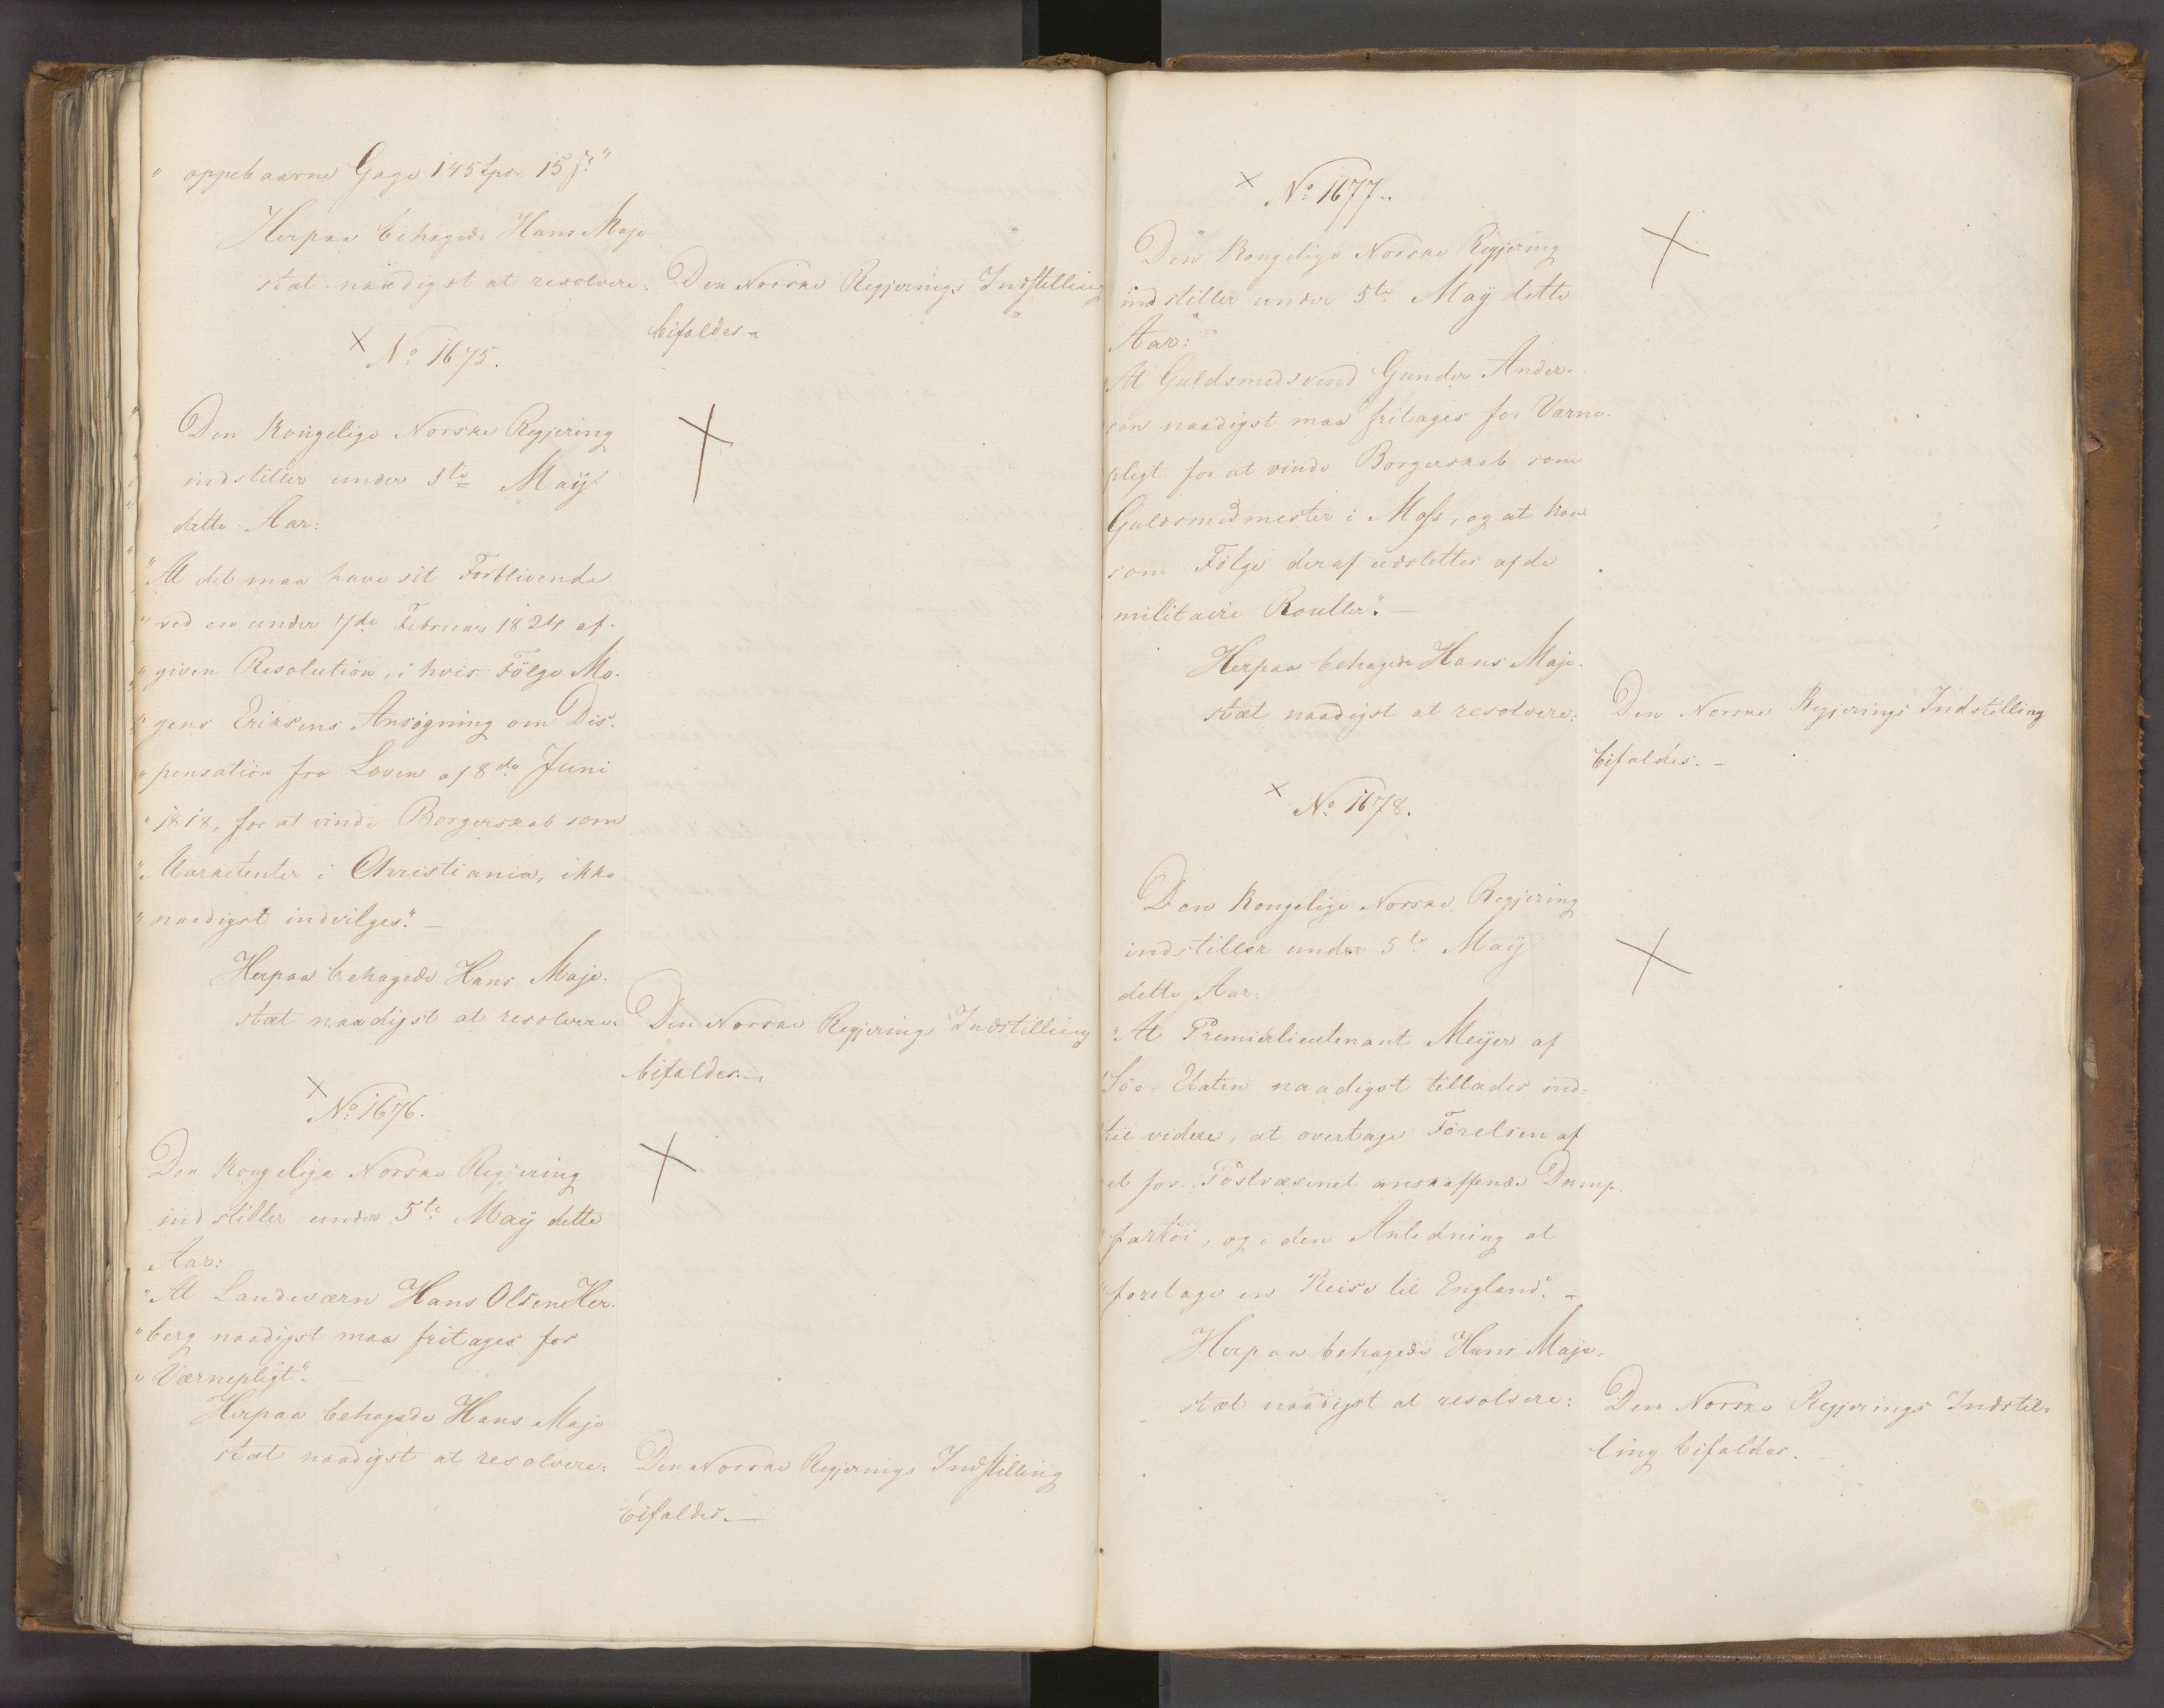 " oppebaarne Gage 145 Spdr. 15 s"
Herpaa behagede Hans Maje
stæt naadigst at resolvere:
Den Norske Regjerings Indstilling
bifaldes.
× No 1675.
Den Kongelige Norske Regjering
indstiller under 5te May
dette Aar:
"At det maa have sit Forblivende
"ved en under 7de Februar 1824 af-
"given Resolution, i hvis Fölge Mo-
"gens Eriksens Ansögning om Dis-
"pensation fra Loven af 8de Juni
"1818, for at vinde Borgerskab som
"Marketenter i Christiania, ikke
"naadigst indvilges". —
Herpaa behagede Hans Maje-
stæt naadigst at resolvere:
Den Norske Regjerings Indstilling
bifaldes. —
× No 1676.
Den Kongelige Norske Regjering
indstiller under 5te May dette
Aar:
"At Landeværn Hans Olsen Her-
"berg naadigst maa fritages for
"Værnepligt". —
Herpaa behagede Hans Maje
stæt naadigst at resolvere:
Den Norske Regjerings Indstilling
bifaldes. —
× No 1677.
Den Kongelige Norske Regjering
indstiller under 5te May dette
Aar:
"At Guldsmedsvend Gunder Ander-
sen naadigst maa fritages for Værne-
pligt for at vinde Borgerskab som
Guldsmedmester i Moss, og at han
som Fölge deraf udslettes af de
militaire Rouller". —
Herpaa behagede Hans Maje-
stæt naadigst at resolvere:
Den Norske Regjerings Indstilling
bifaldes. —
× No 1678.
Den Kongelige Norske Regjering
indstiller under 5te May
dette Aar:
"At Premierlieutenant Meyer af
"Söe-Etaten naadigst tillades ind-
til videre, at overtage Förelsen af
et for Postvæsenet anskaffende Damp-
fartöi, og i den Anledning at
"foretage en Reise til England". —
Herpaa behagede Hans Maje-
stæt naadigst at resolvere:
Den Norske Regjerings Indstil-
ling bifaldes.